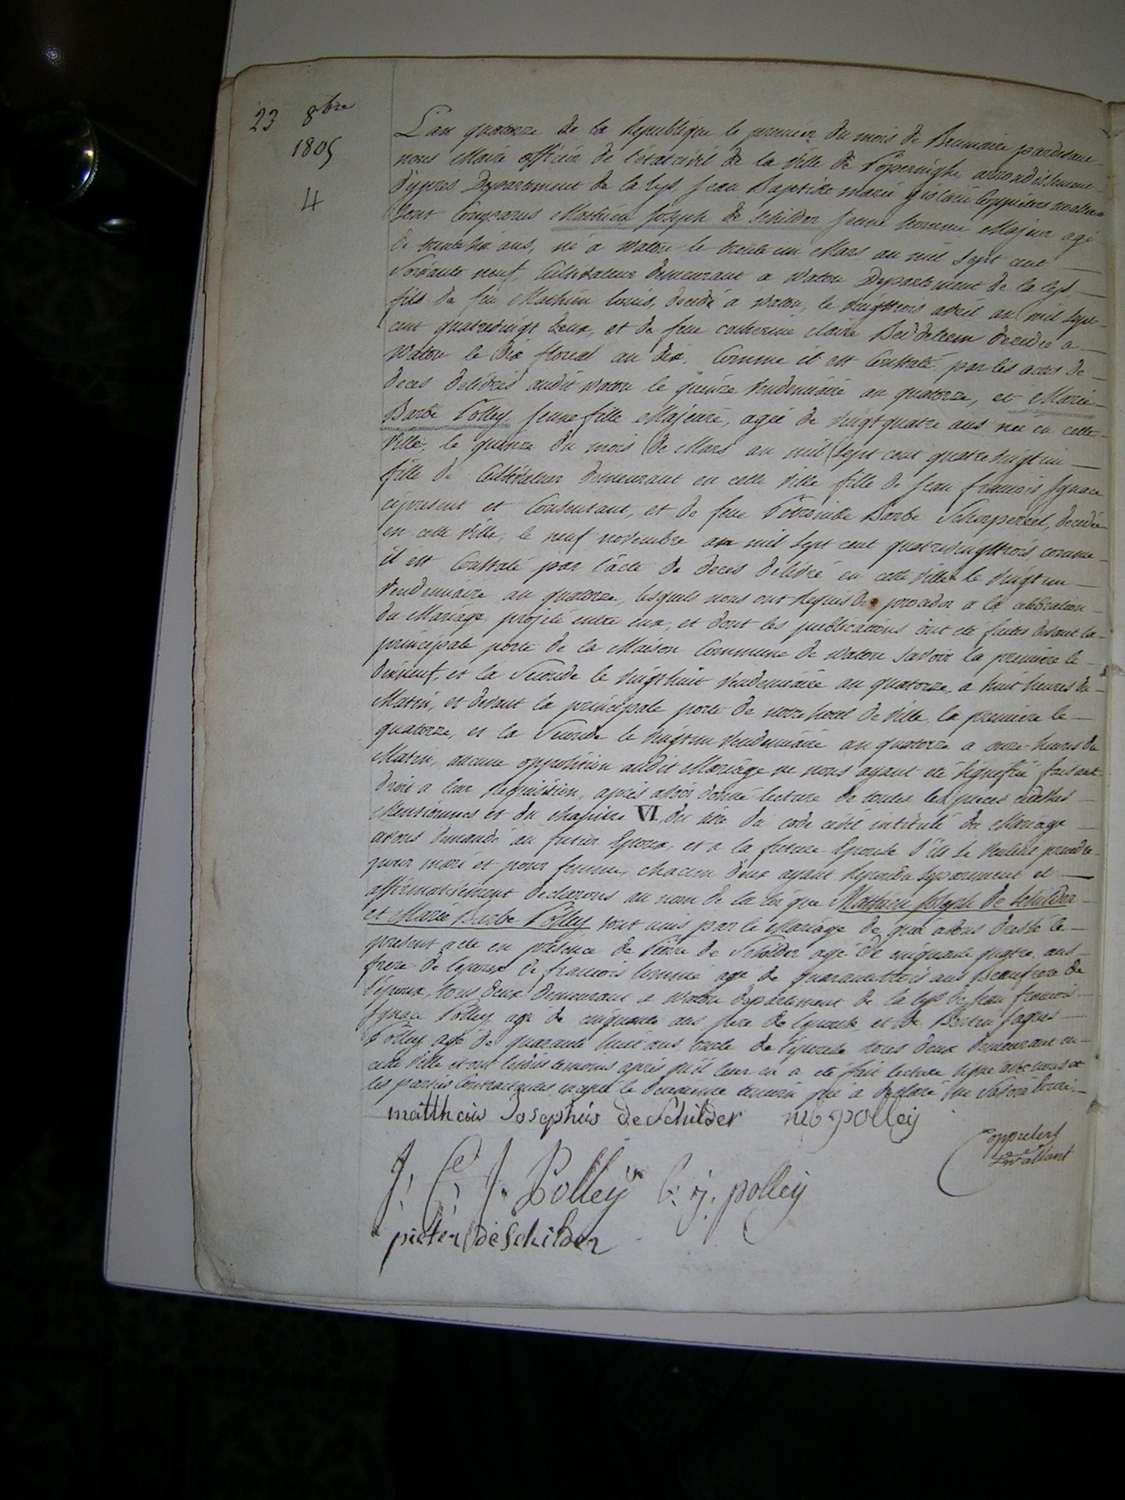 23 8bre
1805
4
L'an quatorze de la République le premier du mois de Brumaire pardevant
nous Maire officier de l'état civil de la ville de Poperinghe arrondissement
d'ypres Département de la Lys, Jean Baptiste marie
sont Comparus Mathieu Joseph de Schilder Jeune homme Majeur agé
de trente six ans, né a Watou le trente un Mars an mil sept cent
Soixante neuf Cultivateur demeurant a Watou Departement de la Lys
fils de feu Mathieu Louis, décédé à Watou, le vingt trois avril an mil sept
cent quatrevingt deux, et de feue catherine claire décédée a
Watou le dix floreal an dix, Comme il est Constaté par les actes de
deces délivrés audit Watou le quinze Vendemiaire an quatorze, et Marie
Barbe Polley Jeune fille Majeure, agée de vingt quatre ans née en cette
ville, le quinze du mois de Mars an mil sept cent quatre vingt un
fille de Cultivateur demeurant en cette ville fille de Jean francois Ignace
ci présent et Consentant, et de feue Pétronille Barbe décédée
en cette ville, le neuf novembre an mil sept cent quatrevingt trois comme
il est Constaté par l'acte de deces délivré en cette ville le vingt un
Vendemiaire an quatorze, lesquels nous ont requis de proceder a la célébration
du Mariage projeté entre eux, et dont les publications ont été faites devant la
principale porte de la Maison Commune de Watou savoir la première le
dixneuf, et la Seconde le vingt huit Vendemiaire an quatorze, a huit heures du
Matin, et devant la principale porte de notre hotel de ville, la premiere le
quatorze, et la Seconde le vingt un Vendemiaire an quatorze a onze heures du
Matin, aucune opposition audit Mariage ne nous ayant été signifiée faisant
droit a leur requisition, après avoir donné lecture de toutes les pieces ci dessus
Mentionnées et du chapitre VI du titre du code civil intitulé du Mariage
avons demandé au futur Epoux, et a la future Epouse s'ils se veulent prendre
pour mari et pour femme, chacun d'eux ayant répondu séparement et
affirmativement declarons au nom de la loi que Mathieu Joseph de Schilder
et Marie Barbe Polley sont unis par le Mariage de quoi avons dressé le
present acte en présence de Pierre de Schilder agé de cinquante quatre ans
frere de l'epoux de francois agé de quarante trois ans Beaufrere de
l'époux, tous deux demeurant a Watou departement de la Lys de Jean francois
Ignace Polley agé de cinquante ans père de l'épouse et de Jaques
Polley agé de quarante huit ans, oncle de l'épouse tous deux demeurant en
cette ville et ont lesdits temoins après qu'il leur en a été fait lecture signé avec nous et
les parties Contractantes, excepté le deuxieme temoin qui a declaré ne savoir écrire
mattheüs Josephüs de Schilder mb polleÿ
J: f: J: Polleÿ b: j: polleÿ
pieter de Schilder